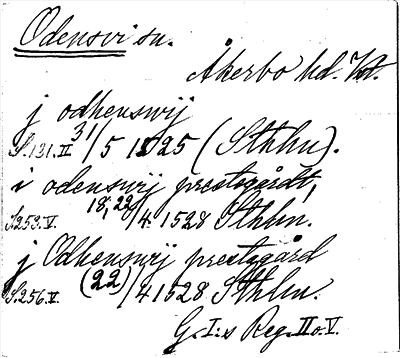 Odensvi sn.
Åkerbo hd. Vstm.
j odhenswij
S.131.II 31/5 1525 (Sthlm).
i odenswij prestegårdt,
S253.V. 18, 22/4 1528 Sthlm.
j Odhenswij prestzgård
S.256.V. (22)/4 1528 Sthlm.
G. I:s Reg. II o. V.